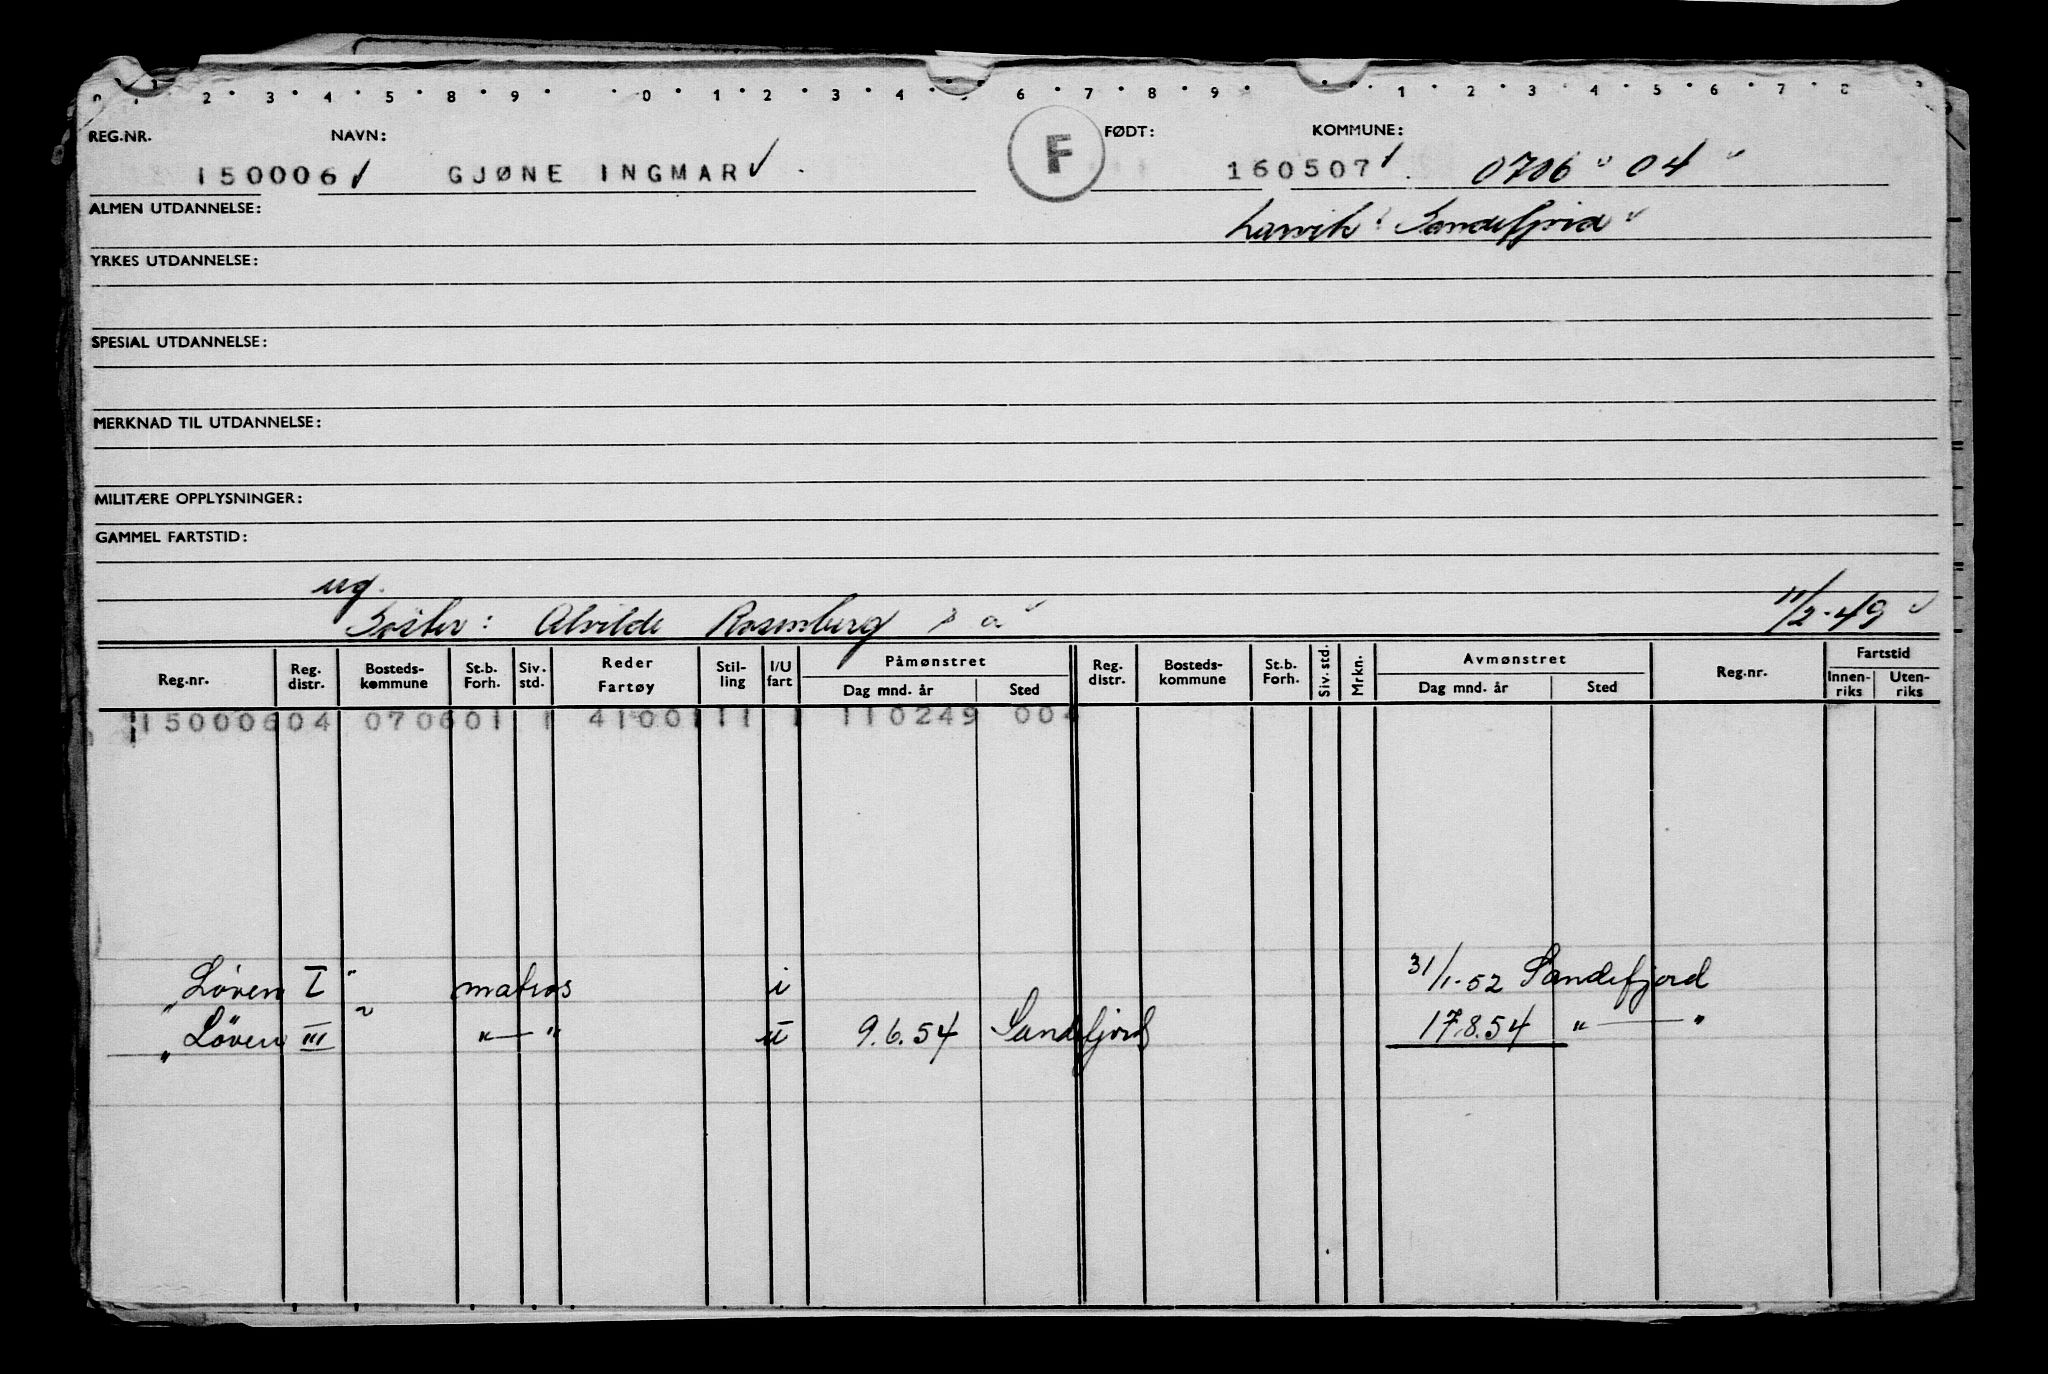 REG.NR. NAVN: FØDT: KOMMUNE:
150006 GJØNE INGMAR F 160507 0706 04
ALMEN UTDANNELSE: Larvik Sandefjord
YRKES UTDANNELSE:
SPESIAL UTDANNELSE:
MERKNAD TIL UTDANNELSE:
MILITÆRE OPPLYSNINGER:
GAMMEL FARTSTID:
ug.
Søster: Alvilde Rosenberg s a 11/2-49
Reg.nr. Reg. distr. Bosteds-kommune St.b. Forh. Siv. std. Reder Fartøy Stil-ling I/U fart Påmønstret Dag mnd. år Sted Reg. distr. Bosteds-kommune St.b. Forh. Siv. std. Mrkn. Avmønstret Dag mnd. år Sted Reg.nr. Fartstid Innen-riks Uten-riks
15000604 070601 1 4100111 1 110249 004
"Løven I" matros i 31/1-52 Sandefjord
"Løven III" "—" u 9.6.54 Sandefjord 17.8.54 "—"